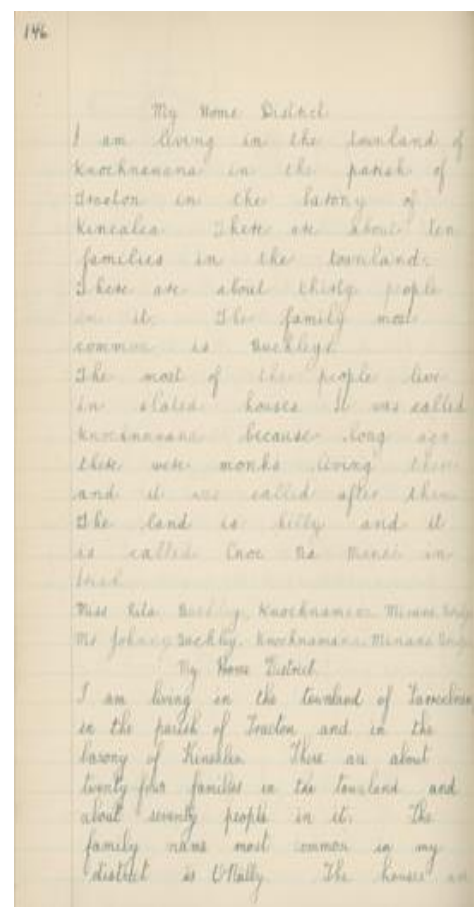 146
My Home District
I am living in the townland of
Knocknamana in the parish of
Tracton in the barony of
Kinealea There are about ten
families in the townland.
There are about thirty people
in it. The family most
common is Buckleys
The most of the people live
in slated houses It was called
Knocknamana because long ago
there were monks living there
and it was called after them
The land is hilly and it
is called Cnoc na Manac in
Irish
Miss Rita Buckley, Knocknamana, Minane Bridge
Mr Johney Buckley, Knocknamana, Minane Bridge
My Home District
I am living in the townland of
in the parish of Tracton and in the
barony of Kinealea There are about
twenty four families in the townland and
about seventy people in it. The
family name most common in my
district is O'Mally The houses are